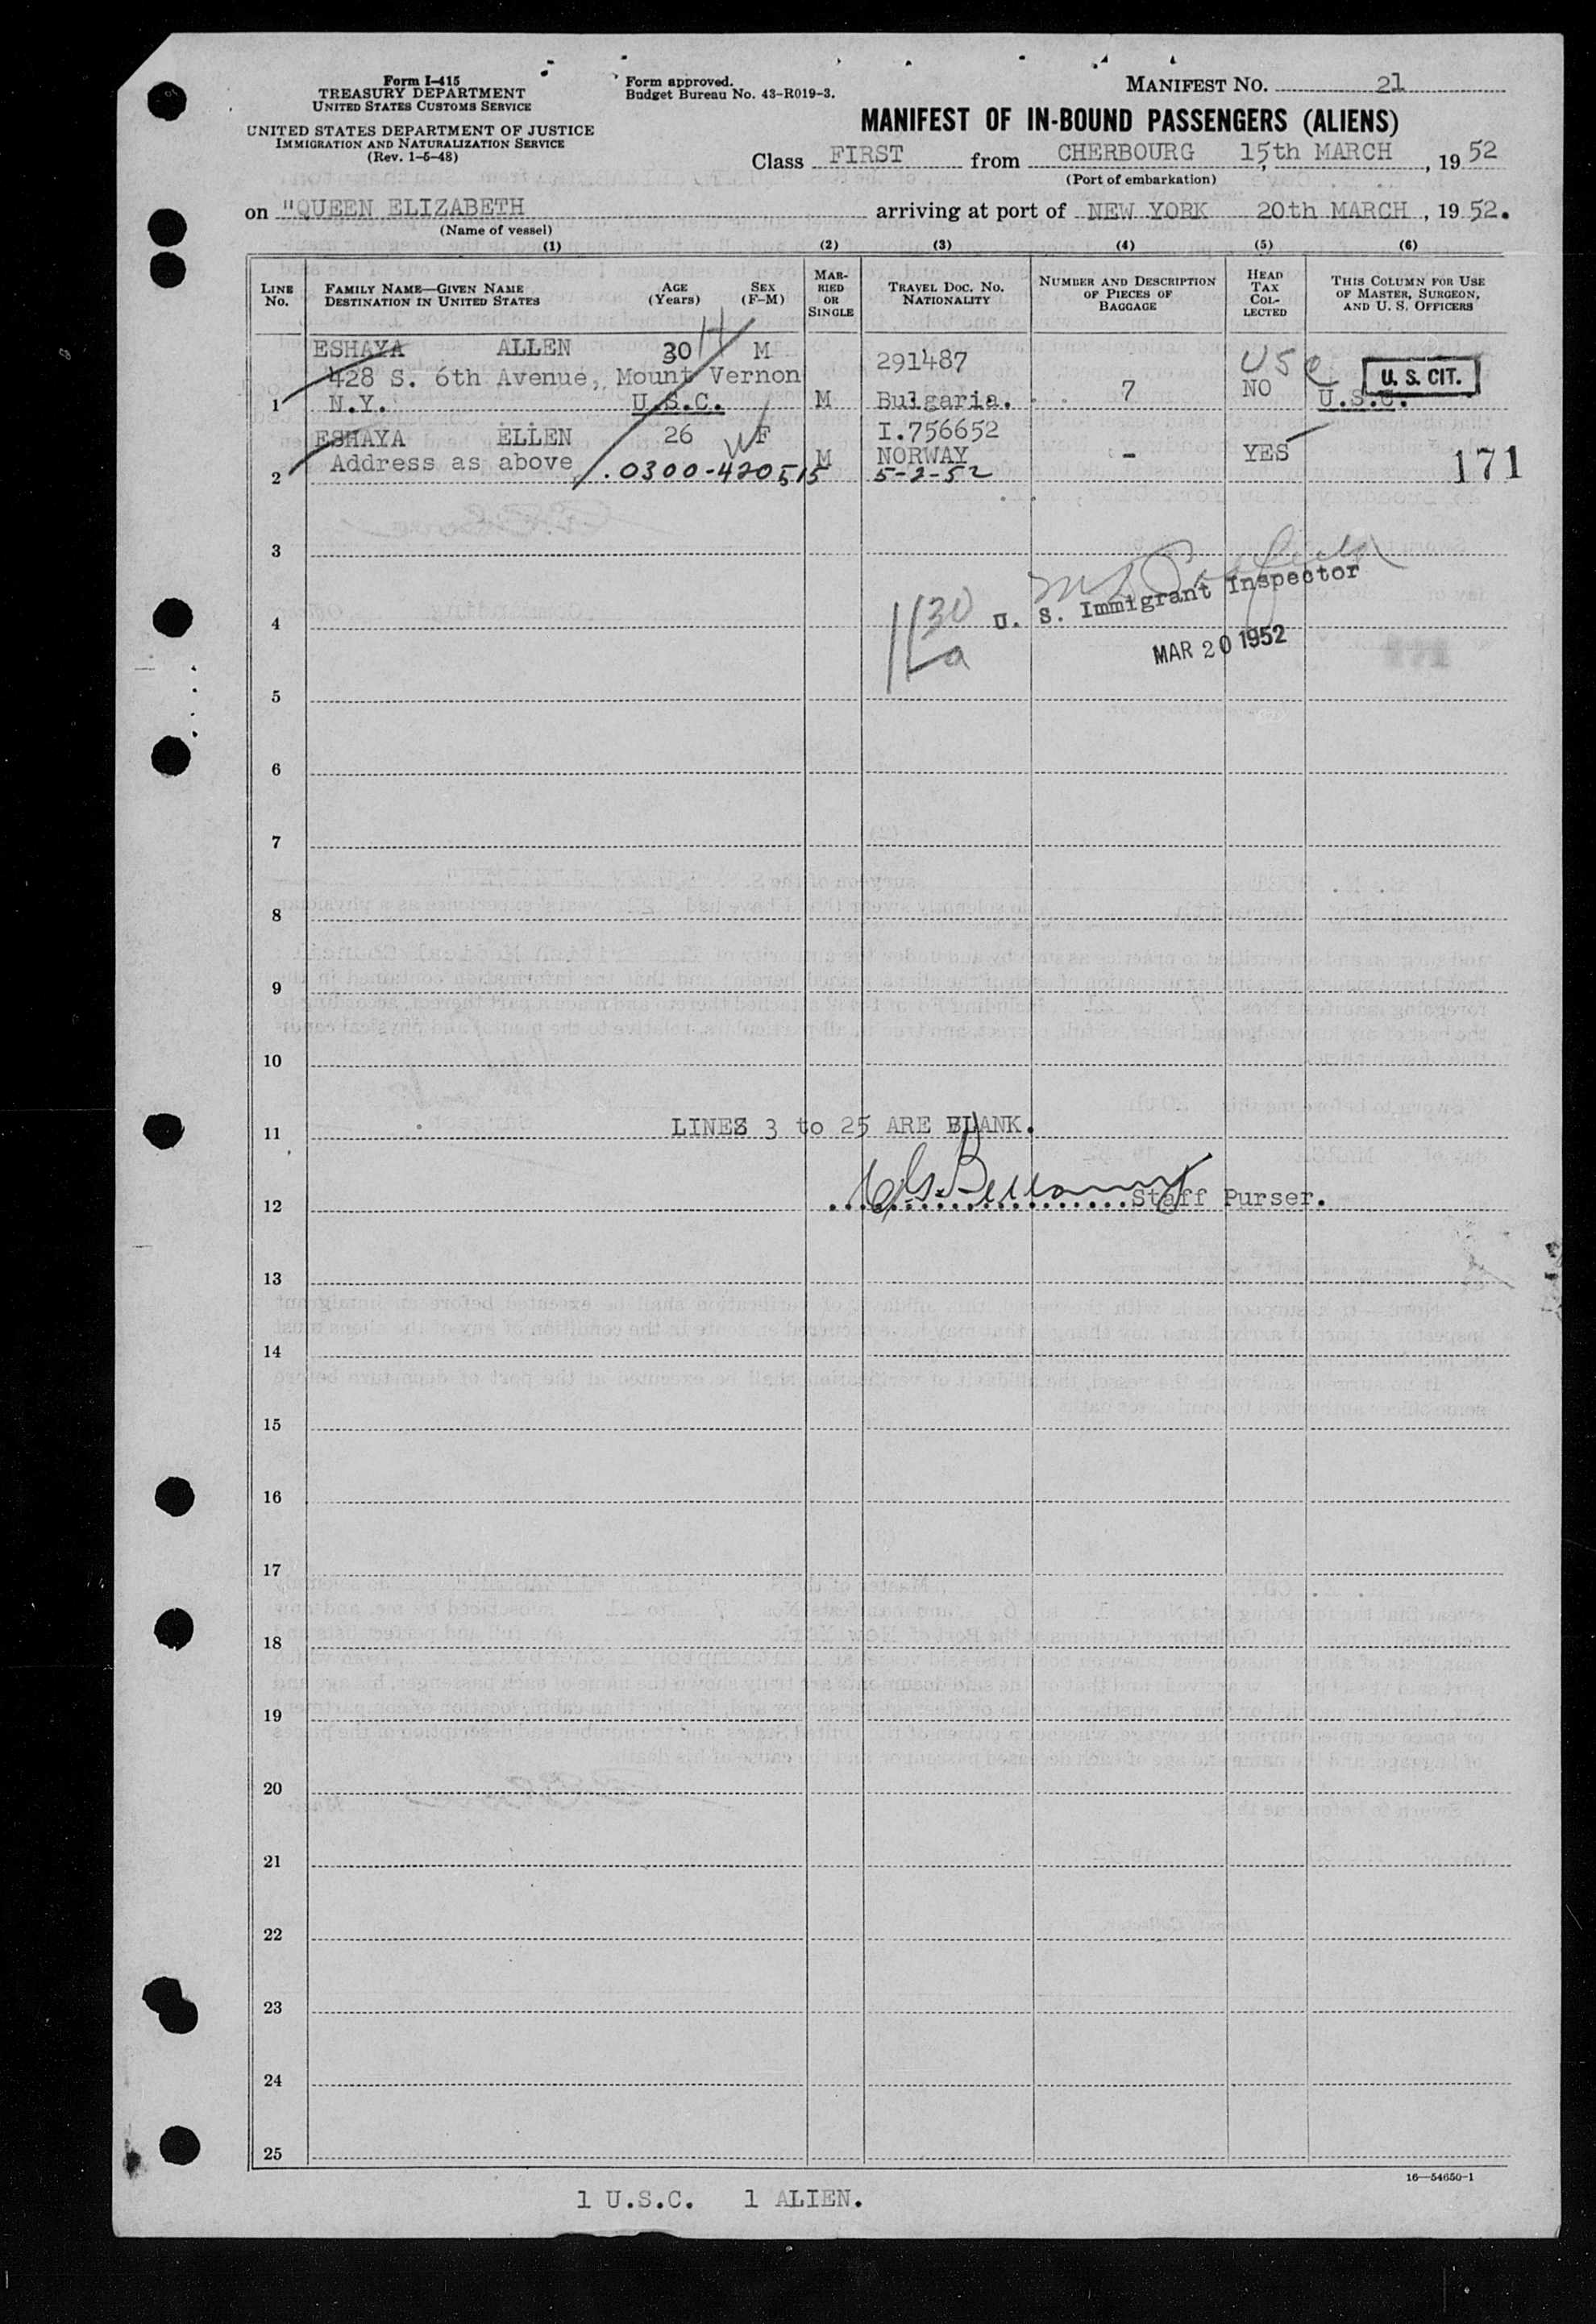 Form I-415
TREASURY DEPARTMENT
UNITED STATES CUSTOMS SERVICE
UNITED STATES DEPARTMENT OF JUSTICE
IMMIGRATION AND NATURALIZATION SERVICE
(Rev. 1-5-48)
Form approved.
Budget Bureau No. 43-R019-3.
MANIFEST NO. 21
MANIFEST OF IN-BOUND PASSENGERS (ALIENS)
Class FIRST from CHERBOURG 15th MARCH, 19 52
(Port of embarkation)
on "QUEEN ELIZABETH arriving at port of NEW YORK 20th MARCH, 19 52.
(Name of vessel)
(1) (2) (3) (4) (5) (6)
LINE No. FAMILY NAME—GIVEN NAME DESTINATION IN UNITED STATES AGE (Years) SEX (F-M) MARRIED OR SINGLE TRAVEL DOC. NO. NATIONALITY NUMBER AND DESCRIPTION OF PIECES OF BAGGAGE HEAD TAX COLLECTED THIS COLUMN FOR USE OF MASTER, SURGEON, AND U. S. OFFICERS
ESHAYA ALLEN 30 H M 291487 USC
428 S. 6th Avenue, Mount Vernon 7 NO U. S. CIT.
1 N.Y. U.S.C. M Bulgaria. U.S.C.
ESHAYA ELLEN 26 W F I.756652
Address as above M NORWAY - YES 171
2 .0300-420515 5-2-52
3
U. S. Immigrant Inspector
4 1130 a
MAR 20 1952
5
6
7
8
9
10
11 LINES 3 to 25 ARE BLANK.
12 Staff Purser.
13
14
15
16
17
18
19
20
21
22
23
24
25
16—54650-1
1 U.S.C. 1 ALIEN.